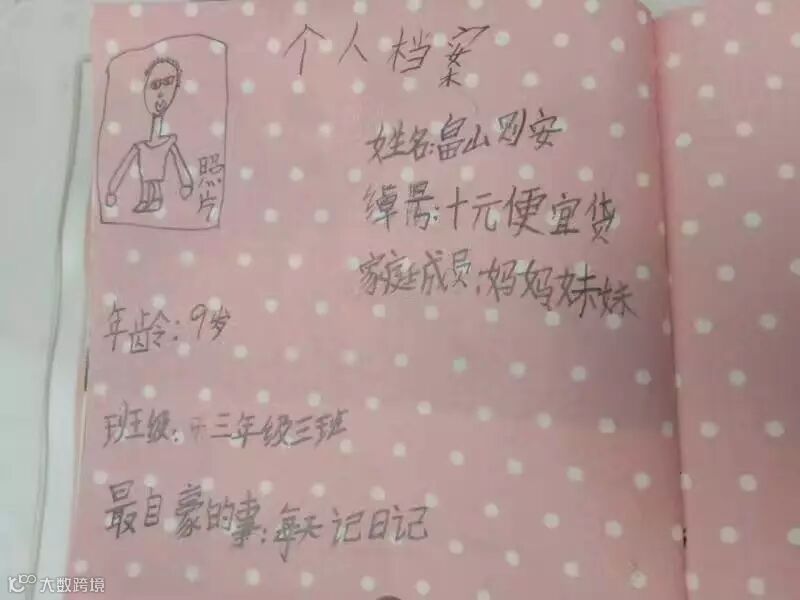 个人档案
照片
姓名:畠山则安
绰号:十元便宜货
家庭成员:妈妈妹妹
年龄:9岁
班级:三年级三班
最自豪的事:每天记日记
大数跨境